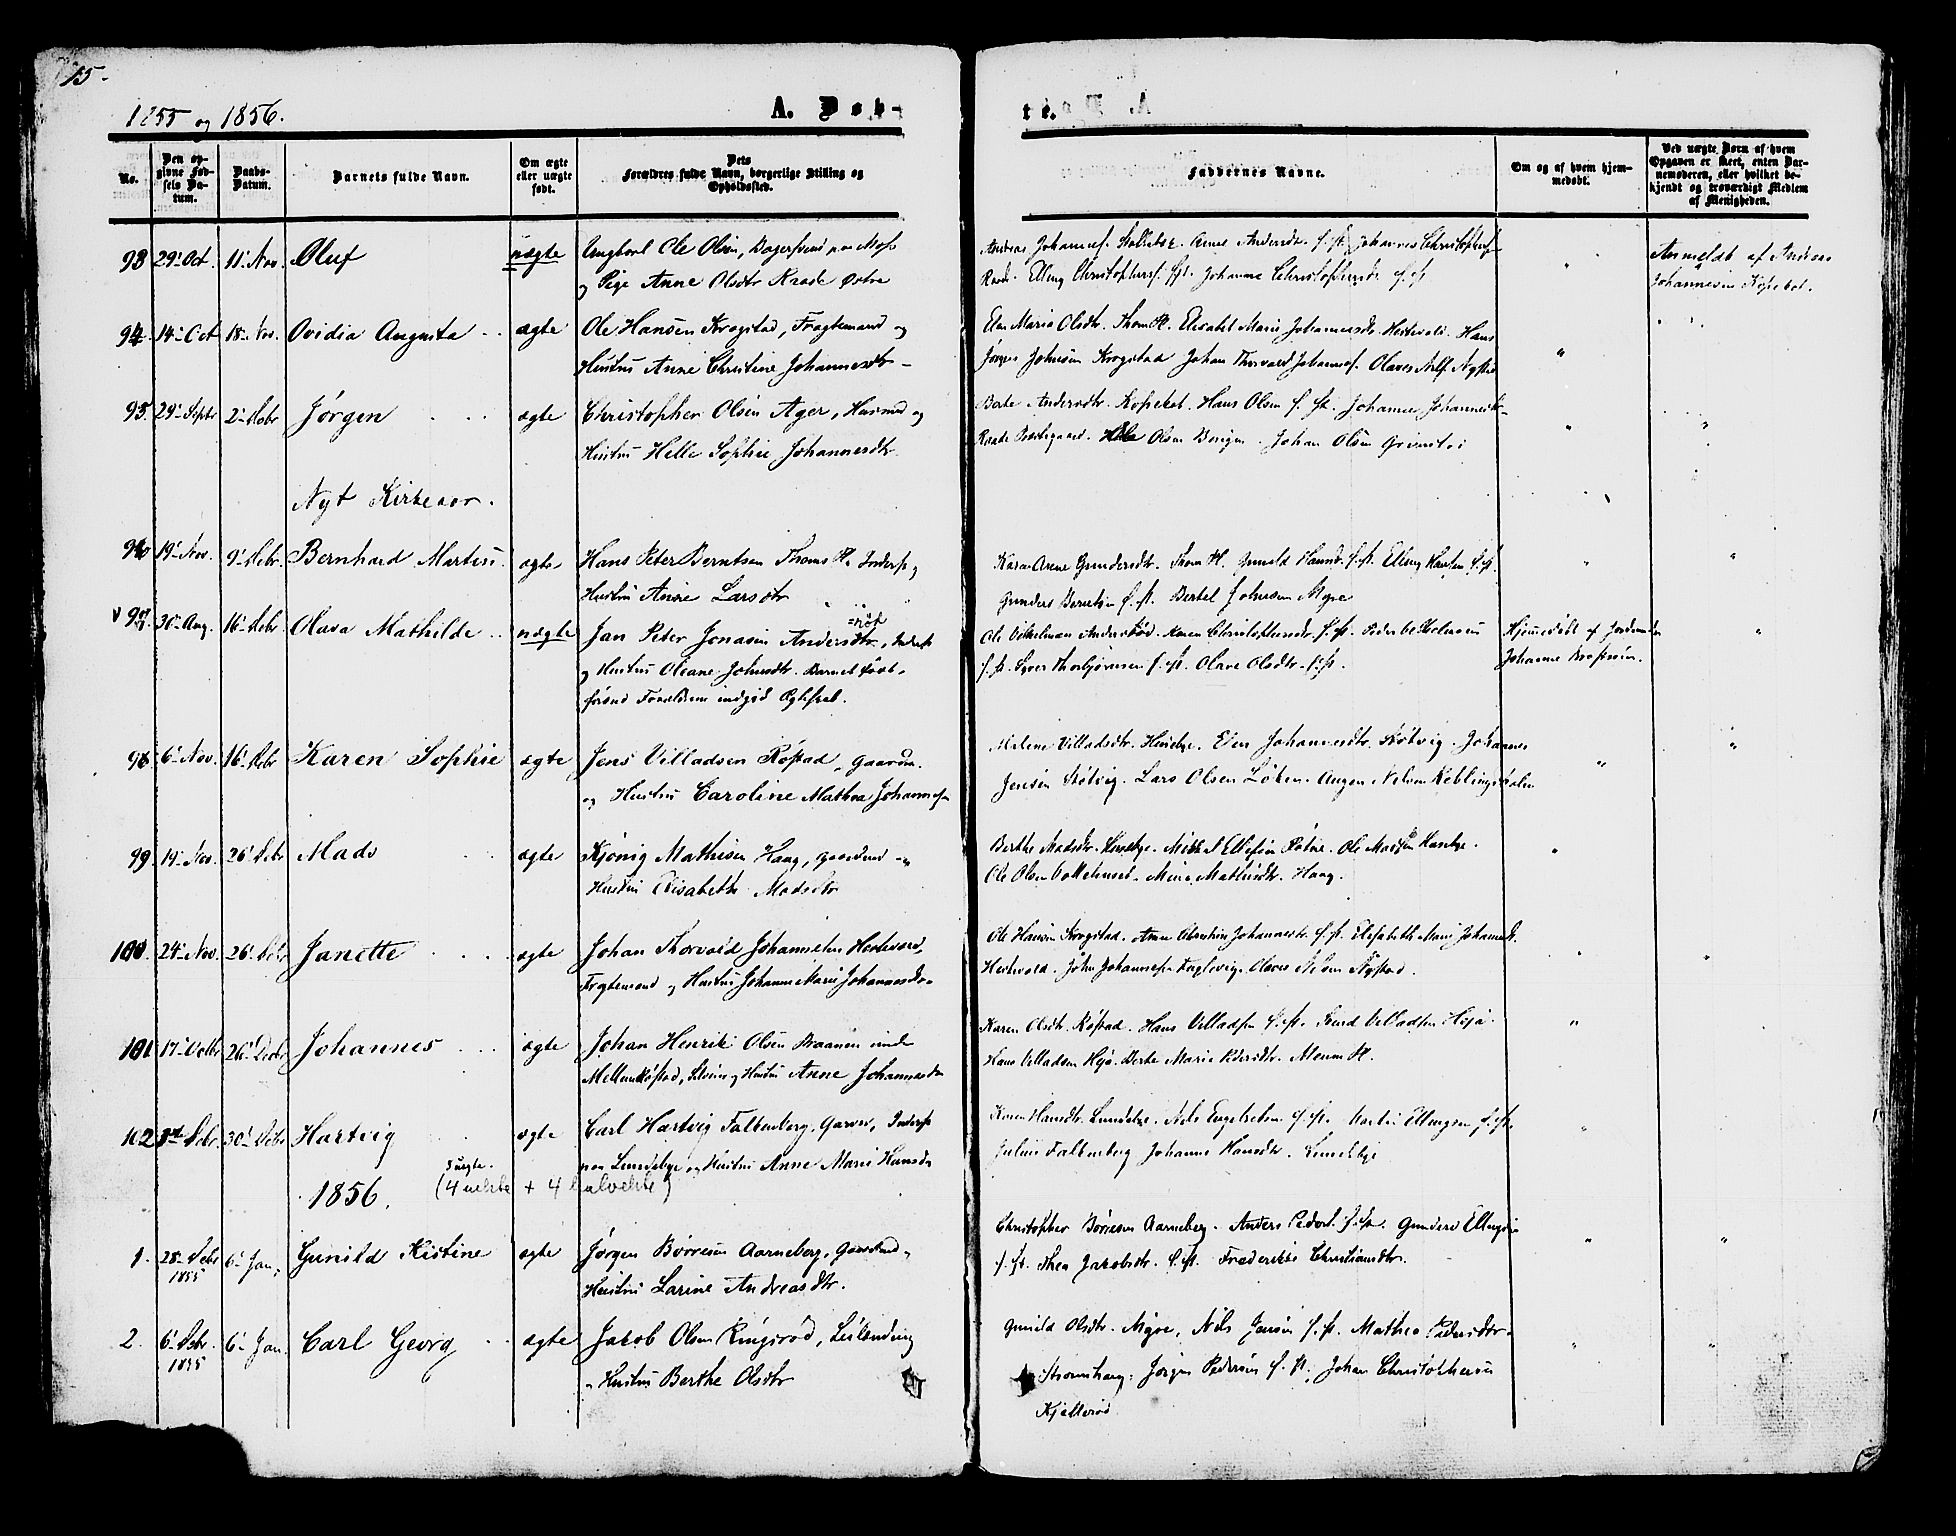 15.
1855 og 1856.
A. Døb-
te.
No.
Den op-
givne Fød-
sels Da-
tum.
Daabs-
Datum.
Barnets fulde Navn.
Om ægte
eller uægte
født.
Dets
Forældres fulde Navn, borgerlige Stilling og
Opholdssted.
Faddernes Navne.
Om og af hvem hjem-
medøbt.
Ved uægte Børn af hvem
Opgaven er skeet, enten Bar-
nemoderen, eller hvilket be-
kjendt og troværdigt Medlem
af Menigheden.
93 29' Oct. 11' Nov. Oluf uægte Ungkarl Ole Olsen, Bagersvend paa Moss
og Pige Anne Olsdtr Raade Østre
Andreas Johannes. Anne Andersdtr. S. St. Johannes Christophers.
Raade. Elling Christophers. Johanne Christophersdtr
Anmeldt af Andreas
Johannesen Kopekot.
94. 14' Oct 18' Nov. Ovidia Augusta ægte Ole Hansen Krogstad, Fragtemand og
Hustru Anne Christine Johannesdtr
Elen Maria Olsdtr. Elisabet Marie Johannesdtr. Hestvold. Hans
Jørgen Johnsen Krogstad Johan Thorvald Johannes. Olaves
95. 29' Septr 2' Debr Jørgen ægte Christopher Olsen Ager, Huusmd og
Hustru Helle Sophie Johannesdtr.
Andersdtr. Kopekot. Hans Olsen S. St. Johanne Johannesdtr
Raade Præstegaard. Olsen Johan Olsen
Nyt Kirkeaar.
96 19' Nov. 9' Debr. Bernhard Martin ægte Hans Peter Berntsen Inders og
Hustru Anne Larsdtr
Karen Anne Gundersdtr. Gunild Hansdtr. S. St. Elling Hansen S. St.
Gunders Berntsen S. St. Bertel Johnsen Myre
v 97 30' Aug. 16' Debr. Olava Mathilde uægte Jan Peter Jonasen Andersrød, Inders
og Hustru Oleane Johnsdtr. Barnet født
førend Forældrene indgik Ægteskab.
Ole Vilhelmsen Andersrød. Karen Christophersdtr. S. St.
S. St. Syver Thorbjørnsen S. St. Olave Olsdtr. S. St.
Hjemmedøbt af Jordemoder
Johanne
98 6' Nov. 16' Debr Karen Sophie ægte Jens Villadsen Røstad, Gaardm.
og Hustru Caroline Mathea Johannes
Melene Villadsdtr. Elen Johannesdtr. Støtvig. Johannes
Jensen Støtvig. Lars Olsen Løken. August Nilsen
99 14' Nov. 26' Debr Mads ægte Kjønig Mathisen Haag, Gaardmd og
Hustru Elisabeth Madsdtr
Berthe Madsdtr. Huseby. Mikkel Ellefsen Ole Madsen Huseby.
Ole Olsen Marie Mathisdtr. Haag.
100. 24' Nov. 26' Debr Janette ægte Johan Thorvald Johannesen Hestevold,
Fragtemand og Hustru Johanne Marie Johannesdtr.
Ole Hansen Krogstad. Anne Christine Johannesdtr. S. St. Elisabeth Marie Johannesdtr.
Hestevold. John Johannesen Fuglevig. Olaves Nilsen Nystad.
101 17' Octbr 26' Debr Johannes ægte Johan Henrik Olsen
Mellem Røstad, og Hustru Anne Johannesdtr
Karen Olsdtr. Røstad. Hans Villadsen S. St. Svend Villadsen Høja.
Hans Villadsen Høja. Berthe Marie Pedersdtr.
102 3' Debr 30' Debr Hartvig ægte Carl Hartvig Falkenberg, Garver, Inders
paa Lundeby og Hustru Anne Marie Hansdtr
Karen Hansdtr. Lundeby. Nils Engebretsen S. St. Martin Ellingsen S. St.
Julius Falkenberg Johanne Hansdtr. Lundeby
5 uægte.
1856. (4 uekte + 4 halvekte)
1. 28' Debr 1855 6' Jan. Gunild Kistine ægte Jørgen Børresen Aarneberg, Gaardmd og
Hustru Larine Andreasdtr.
Christopher Børresen Aarneberg. Anders Peders. S. St. Gunders Ellingsen
S. St. Thea Jakobsdtr. S. St. Frederikke Christiansdtr.
2. 6' Debr. 1855 6' Jan. Carl Georg ægte Jakob Olsen Ringsrød, Leilending
og Hustru Berthe Olsdtr
Gunild Olsdtr. Nils Jensen S. St. Mathea Pedersdtr.
Jørgen Pedersen S. St. Johan Christophersen
Kjellerød